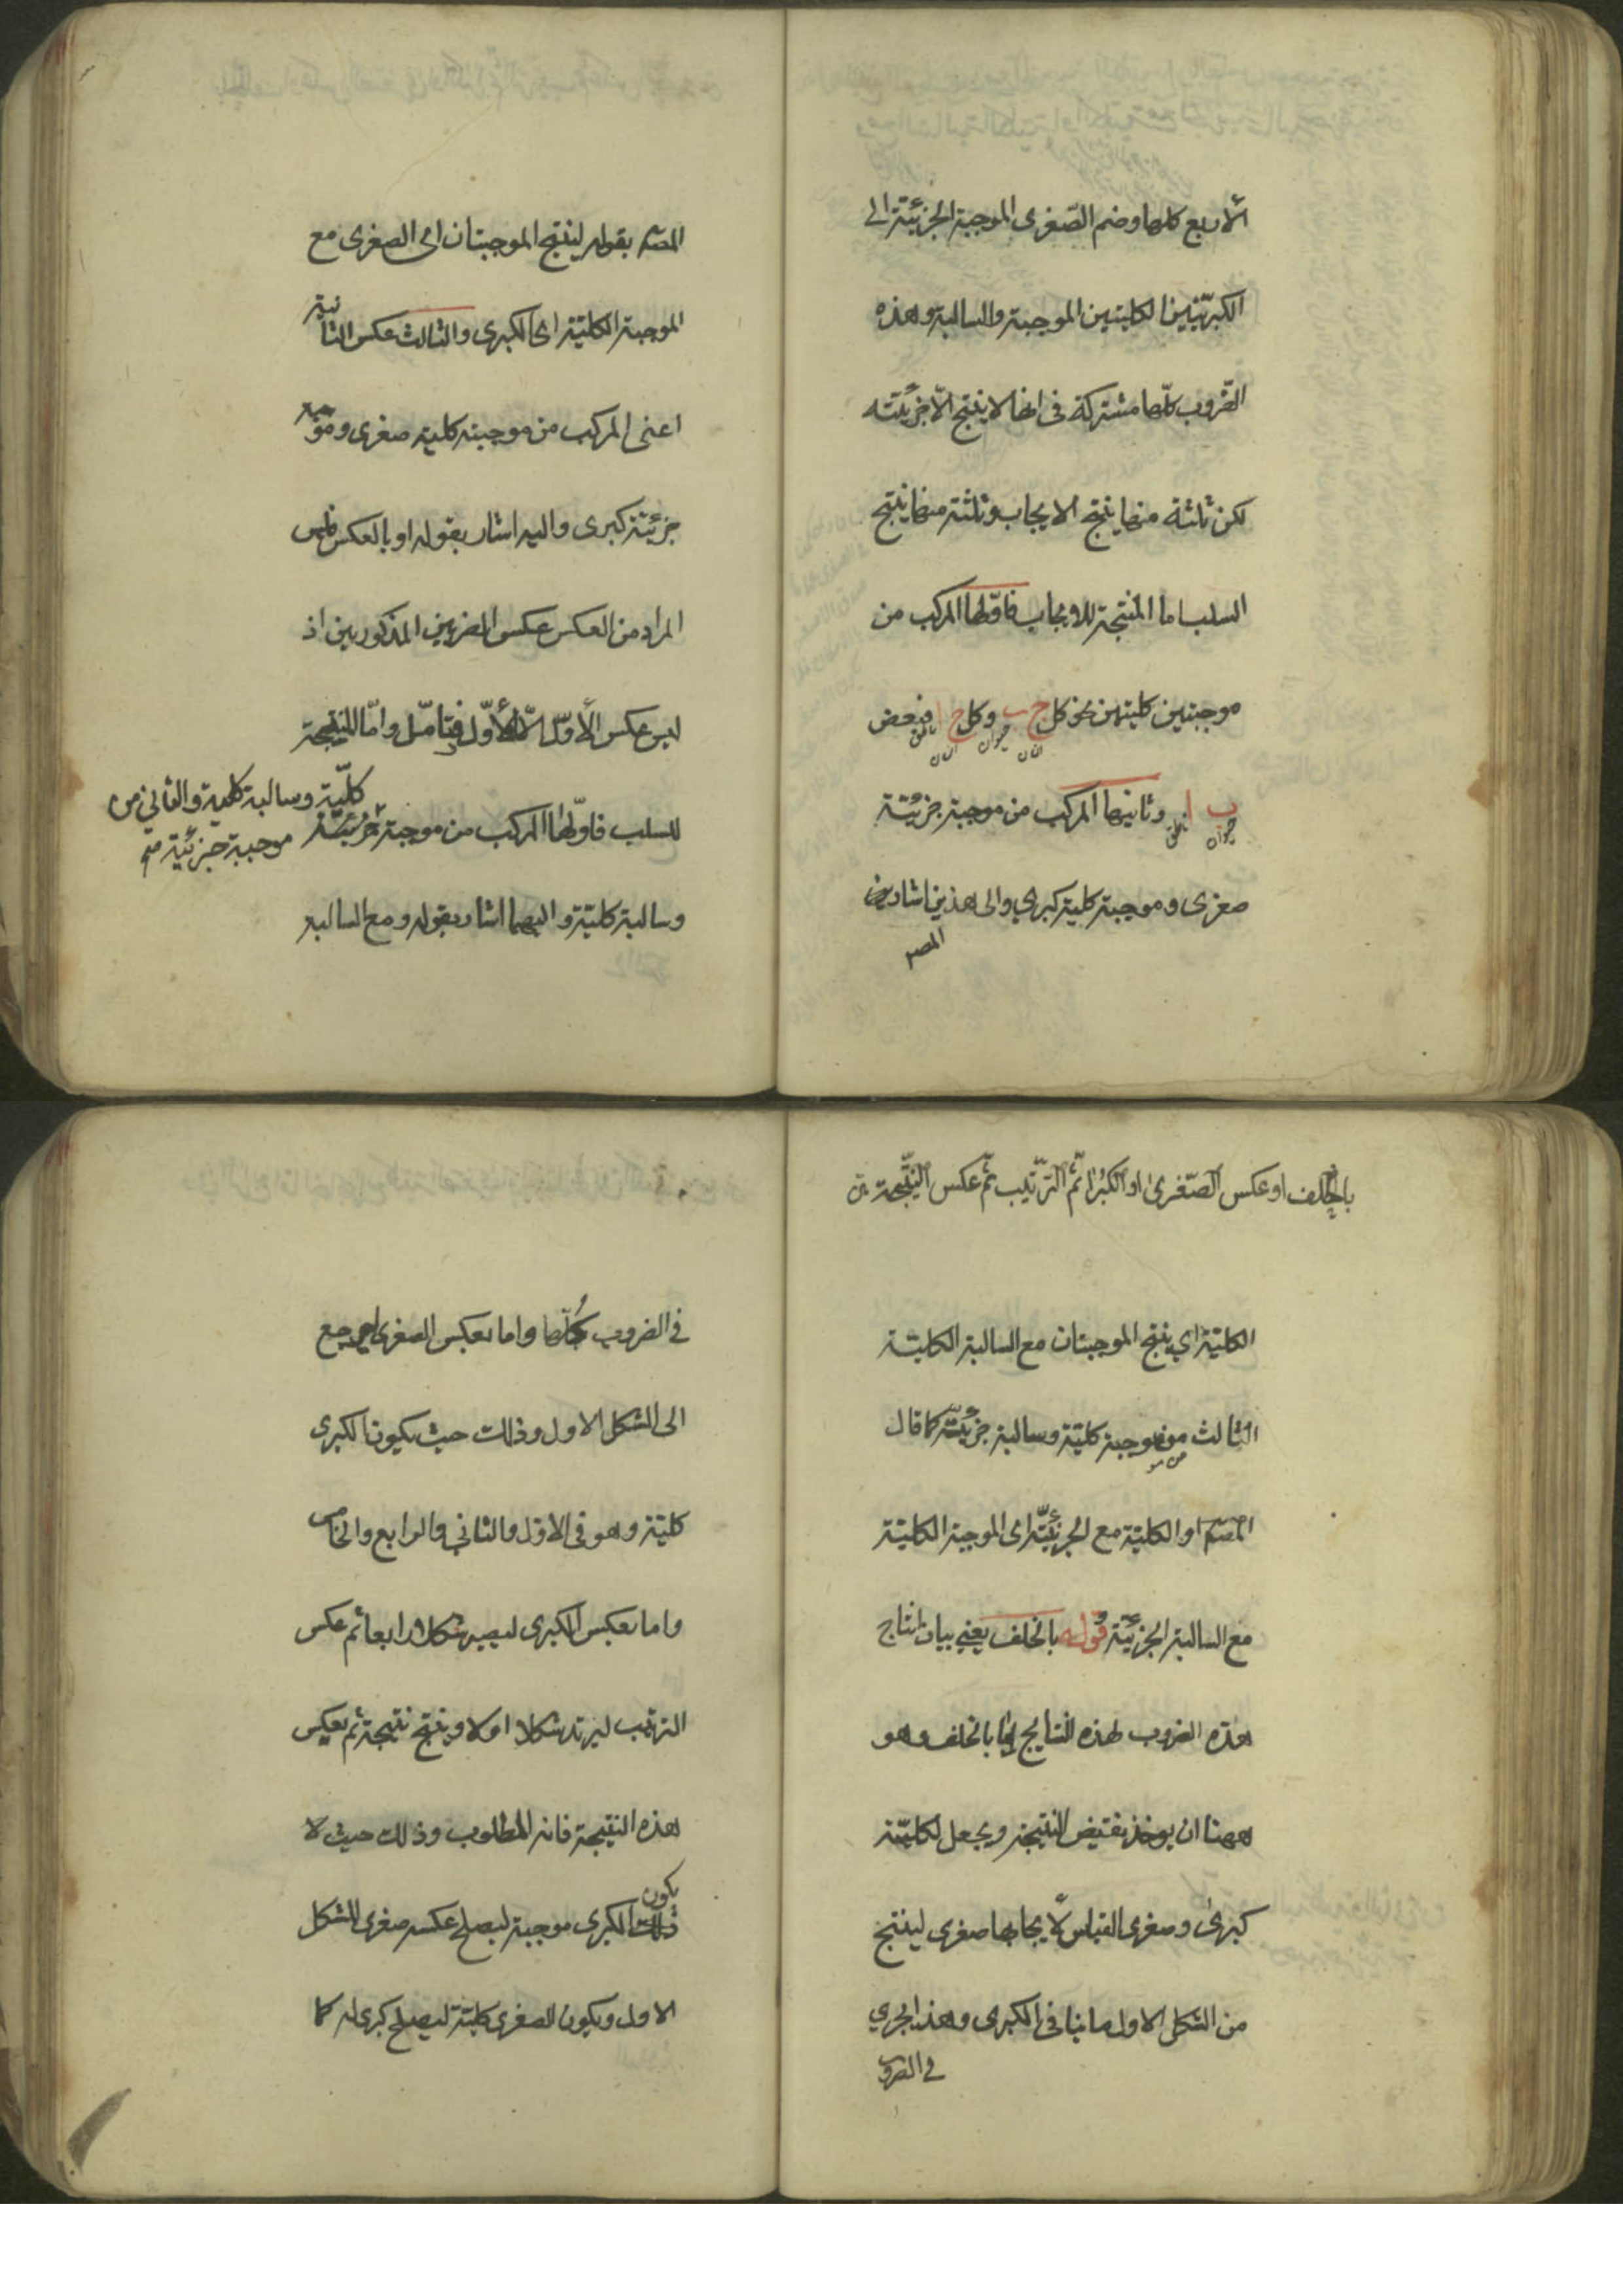 الاربع كلها وضم الصّغرى الموجبة الجزئيّة الى
الكبريّين الكليتين الموجبة والسالبة وهذه
الضّروب كلّها مشتركة فى انها لا ينتج الاّ جزئيّته
لكن ثلثة منها ينتج الايجاب وثلثة منها ينتج
السلب اما المنتجة للايجاب فاوّلها المركب من
موجبتين كليتين نحو كل ج ب وكل ج ا فبعض
انسان حيوان انسان ناطق
ب ا وثانيها المركب من موجبة جزئيّة
حيوان ناطق
صغرى وموجبة كلية كبرى والى هذين اشار
المصـ
المصـ بقوله لينتج الموجبتان اى الصغرى مع
الموجبة الكليّة اى الكبرى والثالث عكس الثانية
اعنى المركب من موجبة كلية صغرى وموجبة
جزئيّة كبرى واليه اشار بقوله او بالعكس فليس
المراد من العكس عكس الضربين المذكورين اذ
ليس عكس الاوّل الاّ الاوّل فتامّل وامّا المنتجة
للسلب فاوّلها المركب من موجبة جزئيّة
كلّيّة وسالبة كلية والثاني من
موجبة جزئية
وسالبة كليّة واليهما اشار بقوله ومع السالبة
بالخلف او عكس الصّغرى او الكبرا ثمّ التّرتيب ثمّ عكس النّتيجة
الكليّة اي ينتج الموجبتان مع السالبة الكليّة
الثالث من موجبة كليّة وسالبة جزئيّة كما قال
من مو
المصـ او الكليّة مع الجزئيّة اى الموجبة الكليّة
مع السالبة الجزئيّة قوله بالخلف يعني بيان انتاج
هذه الضروب لهذه النتايج اما بالخلف وهو
ههنا ان يوخذ نقيض النتيجة ويجعل لكليّته
كبرى وصغرى القياس لايجابها صغرى لينتج
من الشكل الاول ما ينافى الكبرى وهذا يجري
في الضروب
فى الضروب كلّها واما بعكس الصغرى ليرجع
الى الشكل الاول وذلك حيث يكون الكبرى
كليّة وهو فى الاول والثاني والرابع والخامس
واما بعكس الكبرى ليصير شكلا رابعا ثم عكس
الترتيب ليرتد شكلا اولا وينتج نتيجة ثم يعكس
هذه النتيجة فانه المطلوب وذلك حيث لا
يكون
الكبرى موجبة ليصلح عكسه صغرى للشكل
الاول ويكون الصغرى كليّة ليصلح كبرى له كما